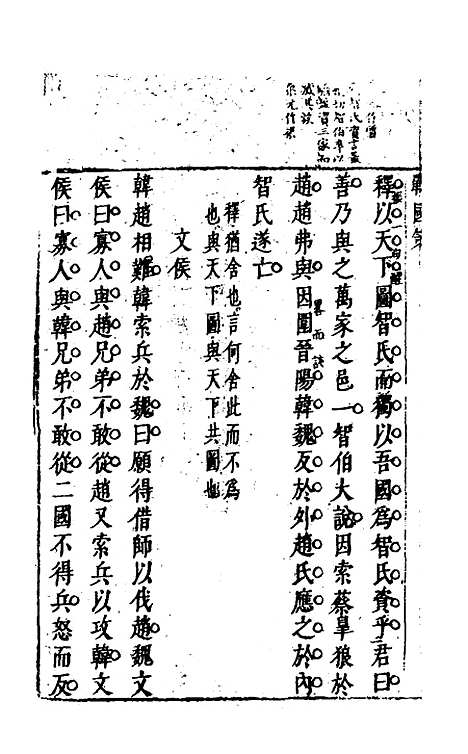 釋以天下圖智氏而獨以吾國為智氏資乎君曰
善乃與之萬家之邑一智伯大說因索蔡皐狼於
趙趙弗與因圍晉陽韓魏反於外趙氏應之於內
智氏遂亡
釋猶舍也言何舍此而不為
也與天下圖與天下共圖也
文侯
韓趙相難韓索兵於魏曰願得借師以伐趙魏文
侯曰寡人與趙兄弟不敢從趙又索兵以攻韓文
侯曰寡人與韓兄弟不敢從二國不得兵怒而反